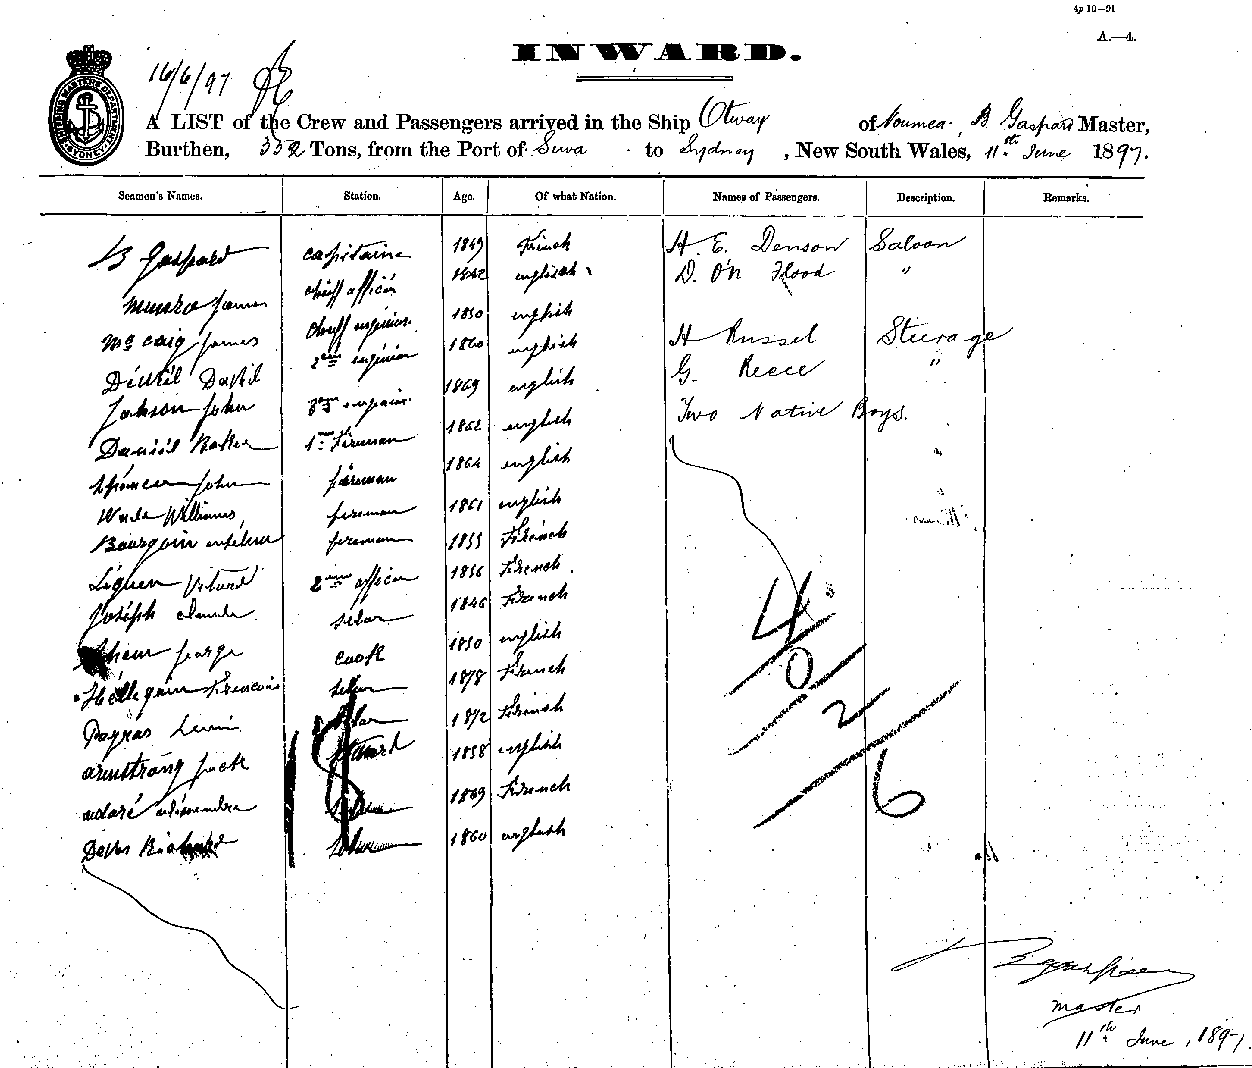 4p 10—91
A.—4.
INWARD.
16/6/97
A LIST of the Crew and Passengers arrived in the Ship Otway of Noumea, B Gaspard Master,
Burthen, 332 Tons, from the Port of Suva to Sydney, New South Wales, 11th June 1897.
Seamen's Names. Station. Age. Of what Nation. Names of Passengers. Description. Remarks.
B Gaspard capitaine 1849 French H. E. Denson Saloon
Munro James chieff officier 1842 english D. O'N Flood "
Mc caig James chieff enginier 1850 english H Russel Steerage
David 2eme enginier 1860 english G. Reece "
Johnson John 3me enginier 1869 english Two Native Boys.
Daniel Baker 1er Fireman 1862 english
Spencer John fireman 1864 english
Wade Williams fireman 1861 english
Bourgoin fireman 1855 French
Liguen 2eme officier 1856 French.
Joseph claude selor 1846 French
george cook 1850 english
Hellegoin Francois selor 1878 French
Paynas selor 1872 French
armstrong Jack stuard 1858 english
selor 1869 French
Richard selor 1860 english
18
4/0/2/6
B gaspard
master
11th June, 1897.